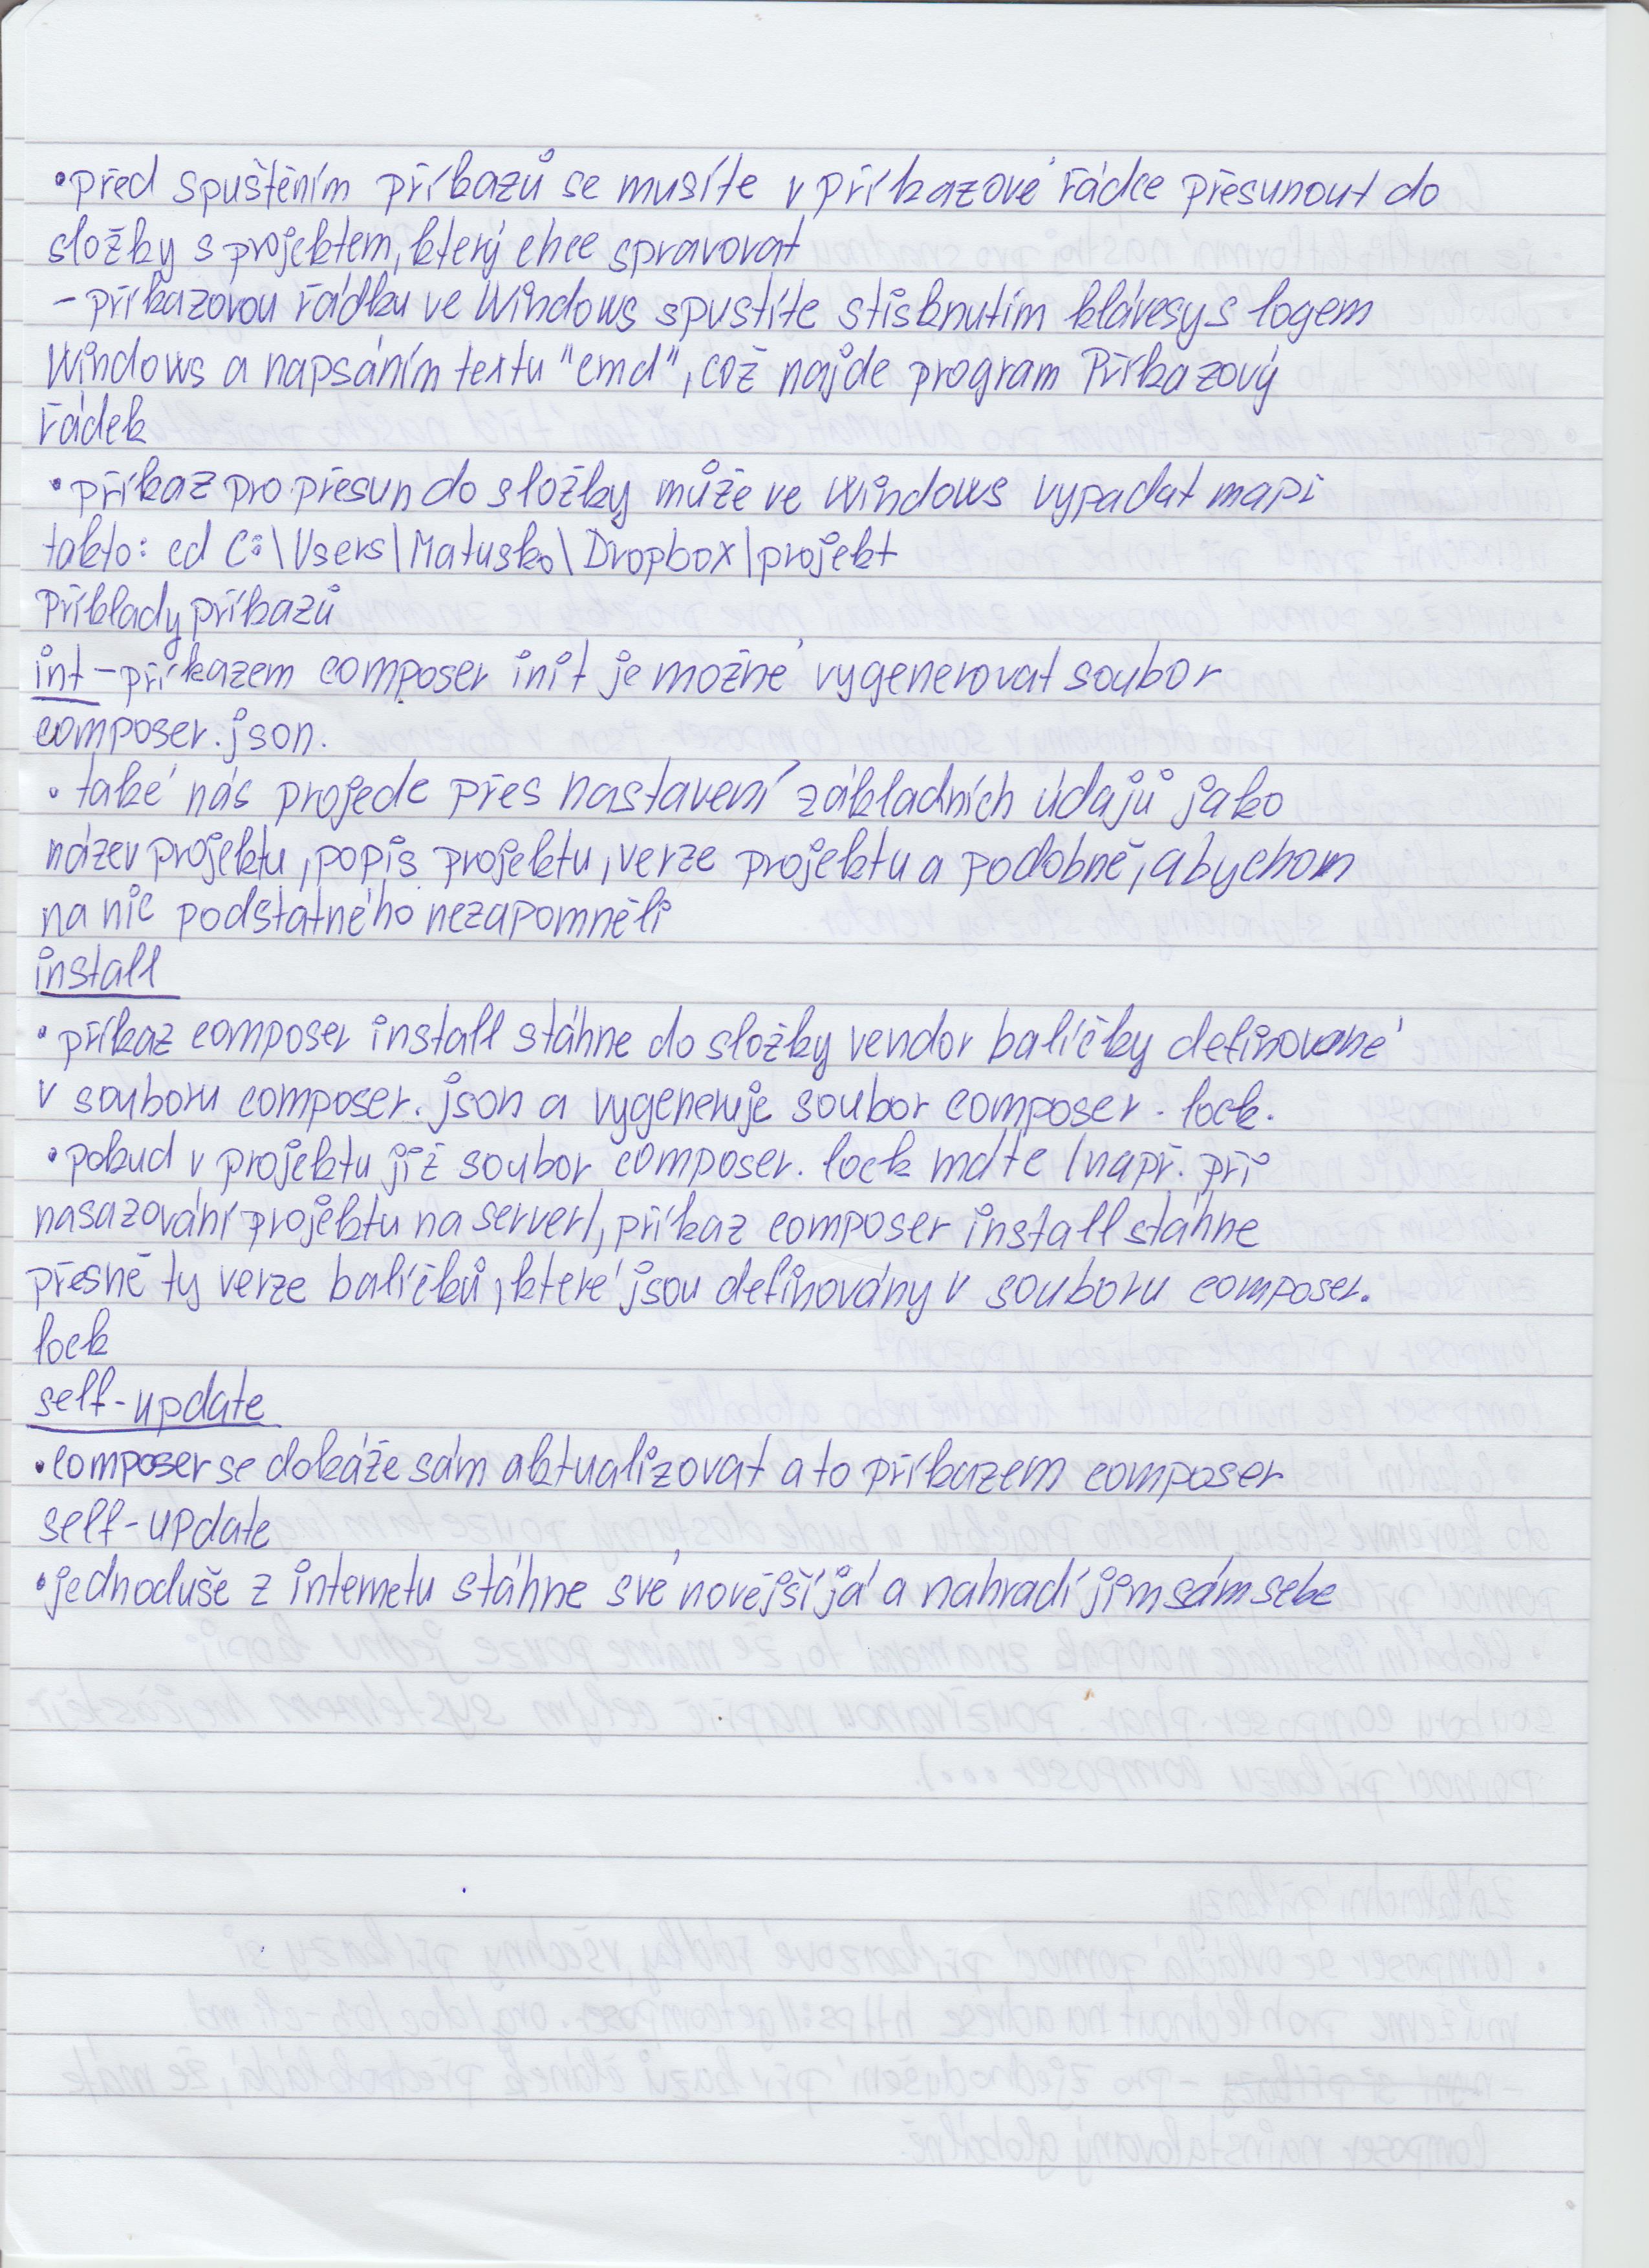 •před spuštěním příkazů se musíte v příkazové řádce přesunout do
složky s projektem, který chce spravovat
- příkazovou řádku ve Windows spustíte stisknutím klávesy s logem
Windows a napsáním textu "cmd", což najde program Příkazový
řádek
•příkaz pro přesun do složky může ve Windows vypadat mapi
takto: cd C:\Users\Matusko\Dropbox\projekt
Příklady příkazů
int - příkazem composer init je možné vygenerovat soubor
composer.json.
• také nás projede přes nastavení základních údajů jako
název projektu, popis projektu, verze projektu a podobně, abychom
na nic podstatného nezapomněli
install
• příkaz composer install stáhne do složky vendor balíčky definované
v souboru composer.json a vygeneruje soubor composer.lock.
•pokud v projektu již soubor composer.lock máte /např. při
nasazování projektu na server/, příkaz composer install stáhne
přesně ty verze balíčků, které jsou definovány v souboru composer.
lock
self-update
•composer se dokáže sám aktualizovat a to příkazem composer
self-update
•jednoduše z internetu stáhne své novější já a nahradí jim sám sebe